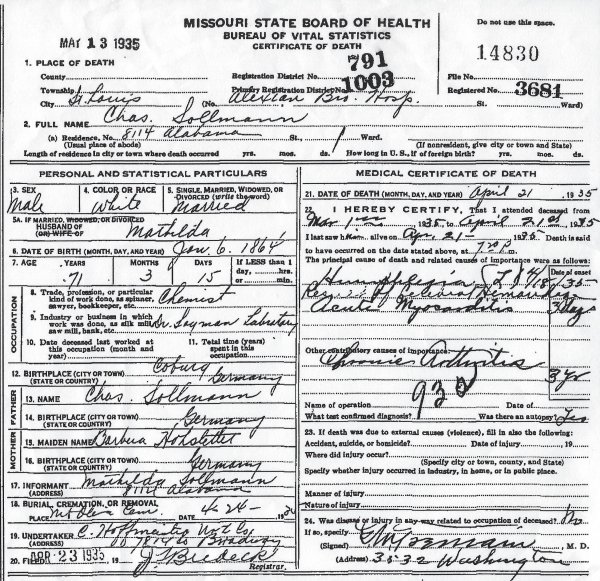 MISSOURI STATE BOARD OF HEALTH
BUREAU OF VITAL STATISTICS
CERTIFICATE OF DEATH
Do not use this space.
MAY 13 1935
14830
1. PLACE OF DEATH
County
Registration District No. 791
File No.
Township
Primary Registration District No. 1003
Registered No. 3681
City St. Louis (No. Alexian Bro. Hosp. St. Ward)
2. FULL NAME Chas. Sollmann
(a) Residence, No. 8114 Alabama St., Ward.
(Usual place of abode) (If nonresident, give city or town and State)
Length of residence in city or town where death occurred yrs. mos. ds. How long in U. S., if of foreign birth? yrs. mos. ds.
PERSONAL AND STATISTICAL PARTICULARS
3. SEX Male
4. COLOR OR RACE White
5. SINGLE, MARRIED, WIDOWED, OR DIVORCED (write the word) Married
5A. IF MARRIED, WIDOWED, OR DIVORCED
HUSBAND OF (OR) WIFE OF Mathilda
6. DATE OF BIRTH (MONTH, DAY, AND YEAR) Jan 6. 1864
7. AGE YEARS 71 MONTHS 3 DAYS 15 If LESS than 1 day, hrs. or min.
OCCUPATION
8. Trade, profession, or particular kind of work done, as spinner, sawyer, bookkeeper, etc. Chemist
9. Industry or business in which work was done, as silk mill, saw mill, bank, etc. Dr.
10. Date deceased last worked at this occupation (month and year)
11. Total time (years) spent in this occupation
12. BIRTHPLACE (CITY OR TOWN) Coburg
(STATE OR COUNTRY) Germany
FATHER
13. NAME Chas. Sollmann
14. BIRTHPLACE (CITY OR TOWN)
(STATE OR COUNTRY) Germany
MOTHER
15. MAIDEN NAME Barbera
16. BIRTHPLACE (CITY OR TOWN)
(STATE OR COUNTRY) Germany
17. INFORMANT Mathilda Sollmann
(ADDRESS) 8114 Alabama
18. BURIAL, CREMATION, OR REMOVAL
PLACE Mt Olive Cem DATE 4-24- 19
19. UNDERTAKER C. Hoffmeister Unt Co
(ADDRESS) 7814 So Broadway
20. FILED APR 23 1935 19
Registrar.
MEDICAL CERTIFICATE OF DEATH
21. DATE OF DEATH (MONTH, DAY, AND YEAR) April 21 1935
22. I HEREBY CERTIFY, That I attended deceased from
1935 to April 21st 1935
I last saw alive on Apr 21 1935 Death is said
to have occurred on the date stated above, at m.
The principal cause of death and related causes of importance were as follows:
Date of onset
Acute Myocarditis
3 days
Other contributory causes of importance:
Chronic Arthritis
3 yr
Name of operation Date of
What test confirmed diagnosis? Was there an autopsy?
23. If death was due to external causes (violence), fill in also the following:
Accident, suicide, or homicide? Date of injury 19
Where did injury occur?
(Specify city or town, county, and State)
Specify whether injury occurred in industry, in home, or in public place.
Manner of injury
Nature of injury
24. Was disease or injury in any way related to occupation of deceased?
If so, specify
(Signed) M. D.
(Address) 3532 Washington